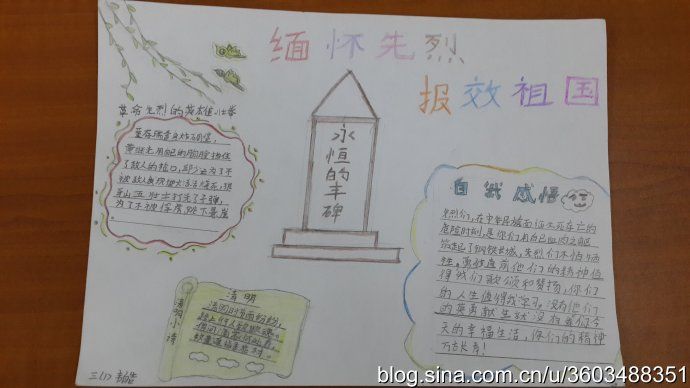 缅怀先烈
报效祖国
革命先烈的英雄壮举
董存瑞舍身炸碉堡,
黄继光用自己的胸膛挡住
了敌人的枪口,邱少云为了不
被敌人发现被大火活活烧死,狼
牙山五壮士打完了子弹,
为了不被俘虏跳下悬崖。
永恒的丰碑
自我感悟
先烈们,在中华民族面临生死存亡的
危险时刻,是你们用自己血肉之躯
筑起了钢铁长城,先烈们不怕牺
牲,勇往直前他们的精神值
得我们歌颂和赞扬,你们
的人生值得我学习,没有他们
的英勇献生就没有我们今
天的幸福生活,你们的精神
万古长青!
清明小诗
清明
清明时节雨纷纷,
路上行人欲断魂。
借问酒家何处有,
牧童遥指杏花村。
三(1)
blog.sina.com.cn/u/3603488351